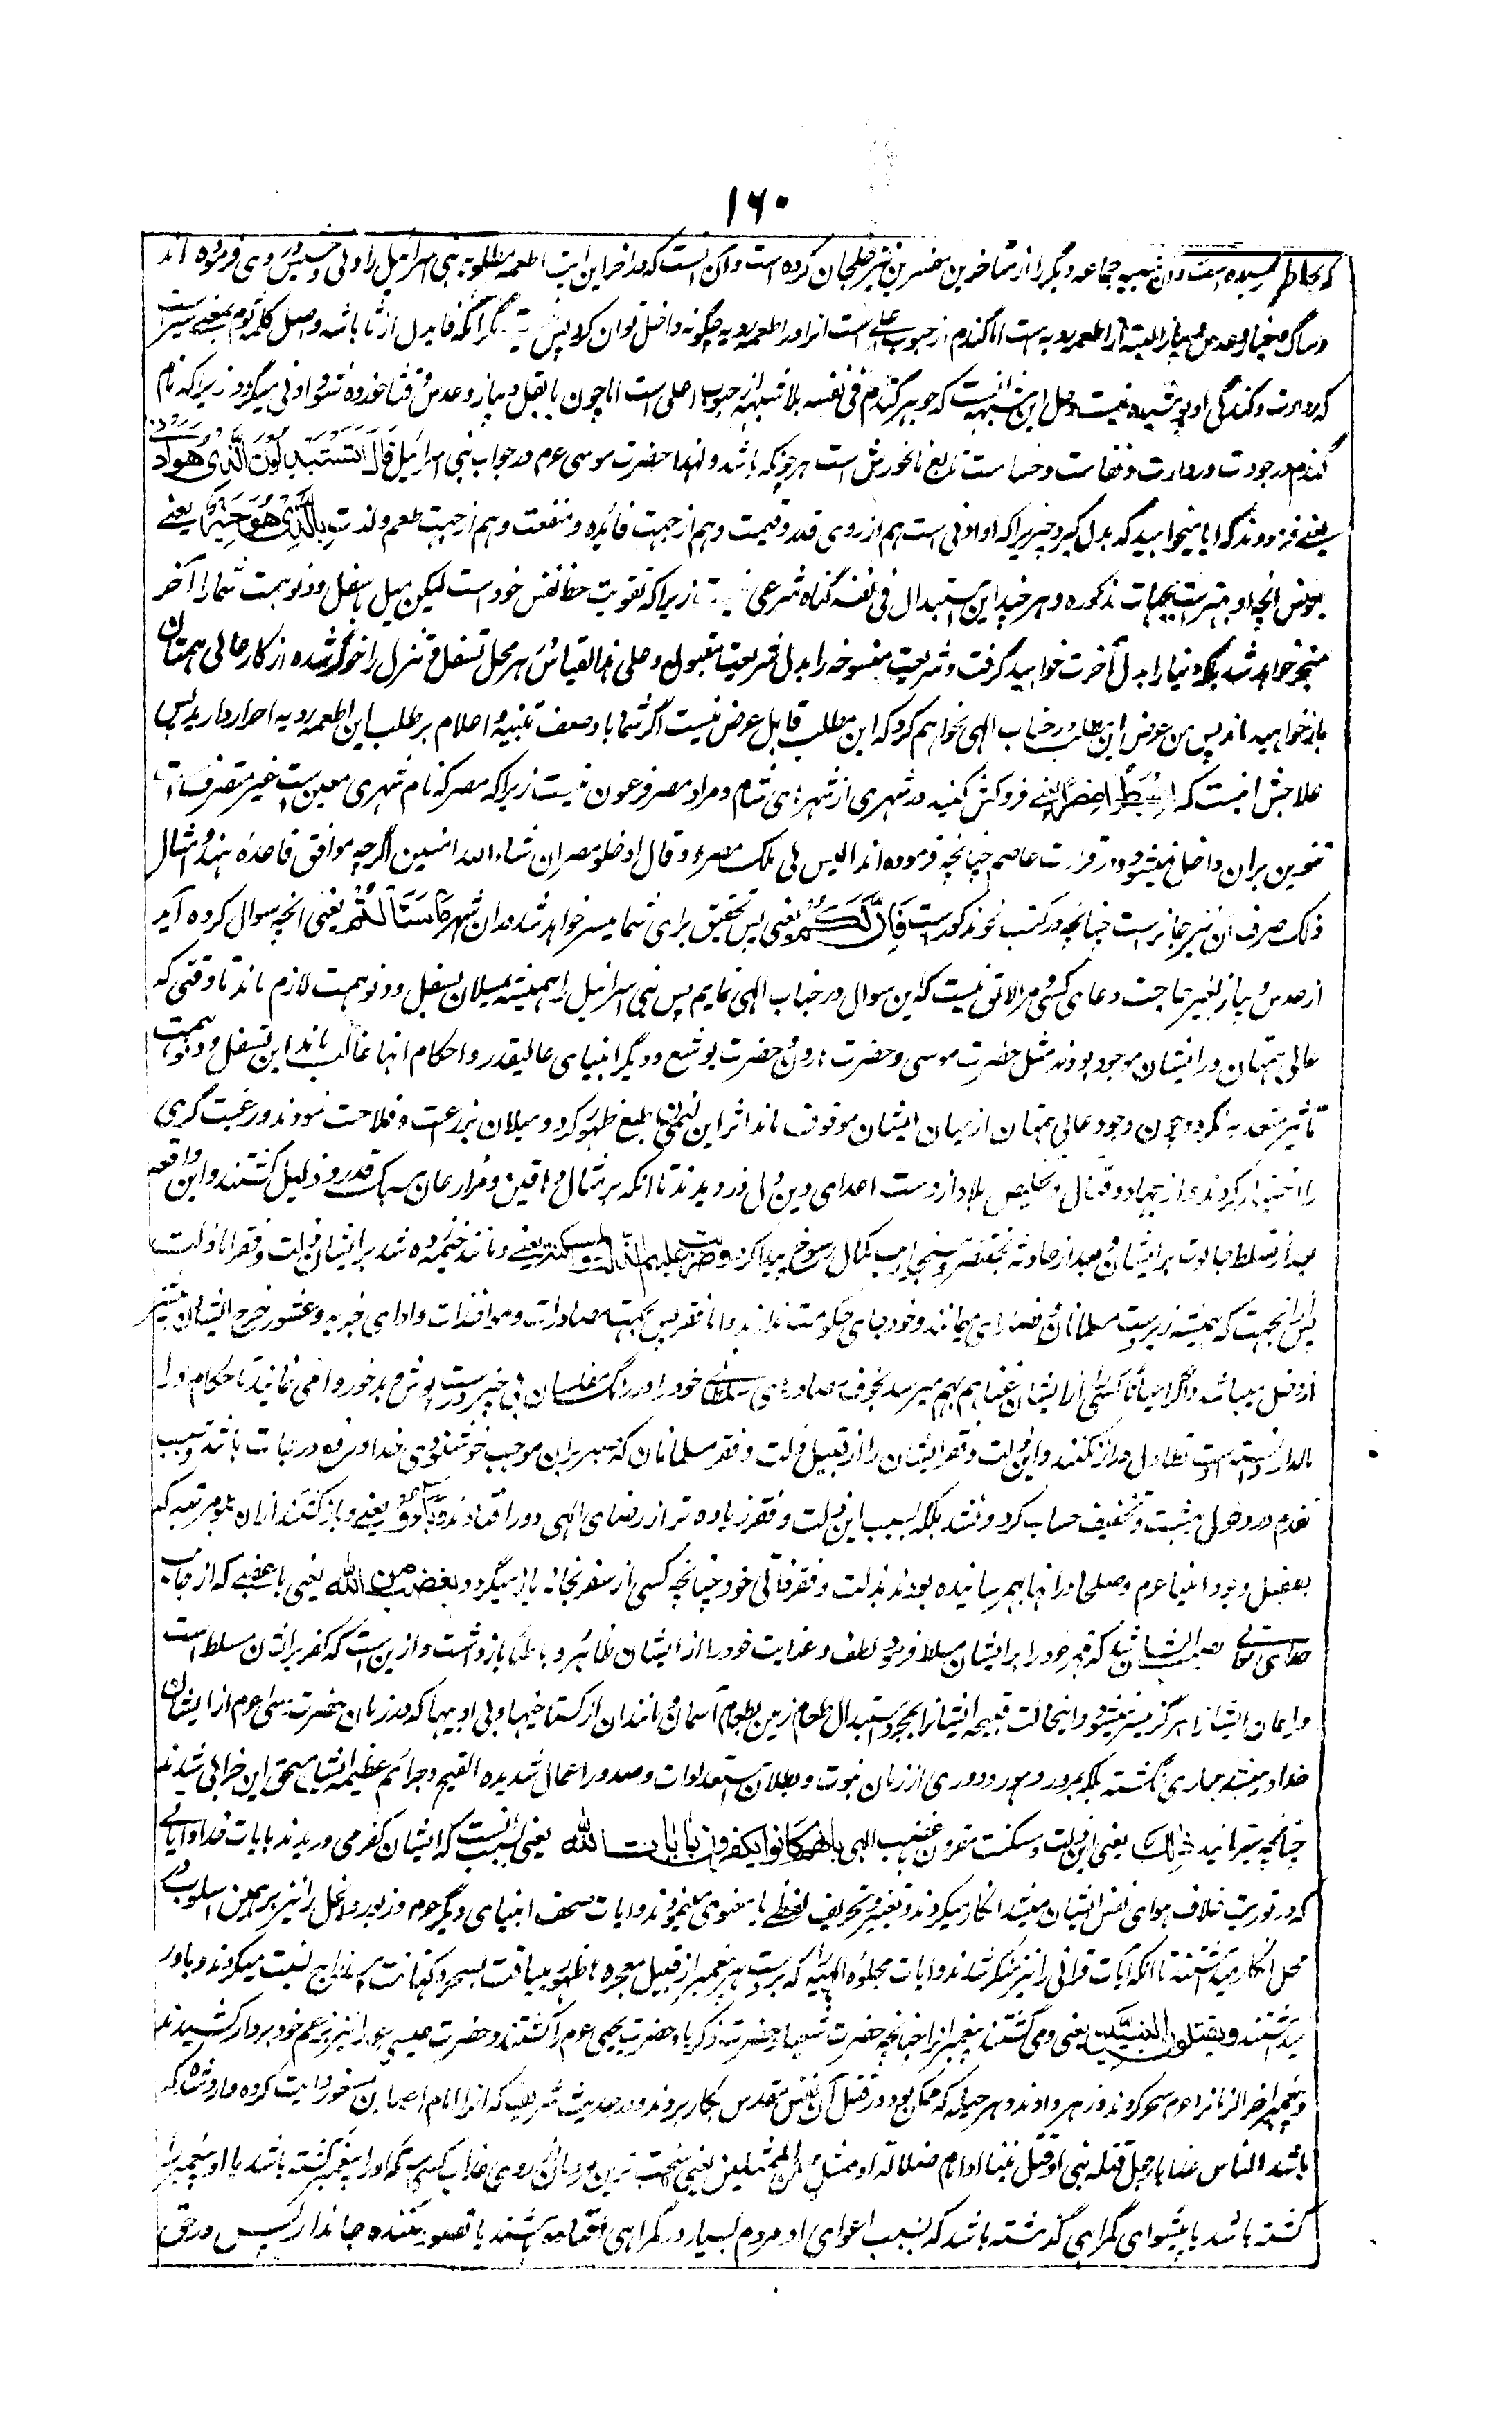 ۱۶۰
که بخاطر رسیده است و آن شبهه جماعه دیگر را از متاخرین مفسرین نیز خلجان کرده است و آن انست که در آخر این آیت اطعمه مطلوبه بنی اسرائیل را ادنی و خسیس و ردی فرموده اند
و ساگ و خیار و عدس و پیاز البته از اطعمه ردیه است اما گندم از حبوب اعلی است انرا در اطعمه ردیه چگونه داخل توان کرد مگر آنکه فا بدل از ثا باشد و اصل کلمه ثوم بمعنی سیر است
که رداءت و گندگی او پوشیده نیست و حل این شبهه انیست که جوهر گندم فی نفسه بلا شبهه از حبوب اعلی است اما چون با بقل و پیاز و عدس و قثا خورده شود ادنی میگردد زیرا که نام
گندم در جودت و رداءت و نفاست و خساست تابع نانخورش است هر چونکه باشد و لهذا حضرت موسی عم در جواب بنی اسرائیل قَالَ اَتَسْتَبْدِلُونَ الَّذِی هُوَ اَدْنٰی
یعنی فرمودند که ایا میخواهید که بدل گیرید چیزیرا که او ادنی است هم از روی قدر و قیمت و هم از جهت فائده و منفعت و هم از جهت طعم و لذت بِالَّذِی هُوَ خَیْرٌ یعنی
بعوض انچه او بهتر است بجهات مذکوره و هر چند این استبدال فی نفسه گناه شرعی نیست زیرا که تقویت حظ نفس خود است لیکن میل باسفل و دنو همت شما را آخر
منجر خواهد شد بانکه دنیا را بدل آخرت خواهید گرفت و شریعت منسوخه را بدل شریعت مقبوله و علی هذا القیاس در هر محل تسفل و تنزل را خوگر شده از کار عالی همتان
باز خواهید ماند پس من عرض این مطلب در جناب الهی نخواهم کرد که این مطلب قابل عرض نیست اگر شما با وصف تنبیه و اعلام بر طلب این اطعمه ردیه اصرار دارید پس
علاجش انیست که اِهْبِطُوا مِصْرًا یعنی فروکش کنید در شهری از شهرهای شام و مراد مصر فرعون نیست زیرا که مصر که نام شهری معین است غیر منصرف است
تنوین بران داخل نمیشود در قراءت عاصم چنانچه فرموده اند الیس لی ملک مصر و قال ادخلو مصر ان شاء الله امنین اگرچه موافق قاعده هند و امثال
ذلک صرف آن نیز جائز است چنانچه در کتب نحو مذکور است فَاِنَّ لَکُمْ یعنی پس تحقیق برای شما میسر خواهد شد دران شهر مَا سَأَلْتُمْ یعنی انچه سوال کرده آید
از عدس و پیاز بغیر حاجت دعای کسی و مرا لائق نیست که این سوال در جناب الهی نمایم پس بنی اسرائیل را همیشه میلان بسفل و دنو همت لازم ماند تا وقتی که
عالی همتان در ایشان موجود بودند مثل حضرت موسی و حضرت هارون و حضرت یوشع و دیگر انبیای عالیقدر و احکام انها غالب ماند این تسفل و دنو همت
تأثیر معتد به نکرد و چون وجود عالی همتان از میان ایشان موقوف ماند اثر این بطبع ظهور کرد و میلان بزراعت و فلاحت نمودند و رغبت گری
را اختیار کردند و از جهاد و قتال و تخلیص بلاد از دست اعدای دین دل دزدیدند تا انکه بر مثال دهاقین و مزارعان سبک قدر و ذلیل گشتند و این واقعه
بعد از تسلط جالوت بر ایشان و بعد از حادثه بختنصر و سنجاریب کمال رسوخ پیدا کرد وَضُرِبَتْ عَلَیْهِمُ الذِّلَّةُ وَالْمَسْکَنَةُ یعنی و مانند خیمه زده شد بر ایشان ذلت و فقر اما ذلت
پس ازینجهت که همیشه زیر دست مسلمانان و نصاری میمانند و خود جای حکومت ندارند و اما فقر پس بجهت مصادرات و مواخذات و ادای جزیه و عشور خرج ایشان بیشتر
از دخل میباشد و اگر احیانا کسی را از ایشان غنا هم بهم میرسد بخوف مصادره سلاطین خود را در رنگ مفلسان بی چیز درست پوش و بدخور وا می نمایند تا حکام او را
مالدار دانسته دست تطاول دراز نکنند و این ذلت و فقر ایشان را از قبیل ذلت و فقر مسلمانان که صبر بران موجب خوشنودی خدا و رفع درجات باشد و سبب
تقدم در دخول بهشت و تخفیف حساب کرد و نشد بلکه بسبب این ذلت و فقر زیاده تر از رضای الهی دور افتادند وَبَاءُو یعنی و باز گشتند ازان علو مرتبه که
بفضل وجود انبیا عم و صلحا در انها بهم رسانیده بودند بذلت و فقر ذاتی خود چنانچه کسی از سفر بخانه باز میگردد بِغَضَبٍ مِنَ اللّٰهِ یعنی با غضبی که از جانب
خدای تعالی نصیب ایشان شد که قهر خود را بر ایشان مسلط فرمود و لطف و عنایت خود را از ایشان ظاهر و باطن بازداشت و ازین است که کفر بر ایشان مسلط است
و ایمان ایشانرا هرگز میسر نمیشود و اینحالت قبیحه ایشانرا بمجرد استبدال طعام زمین بطعام آسمان و مانندان از گستاخیها و بی ادبیها که در زمان حضرت موسی عم از ایشان
صادر میشد جاری نگشته بلکه بمرور دهور و دوری از زمان نبوت و بطلان استعدادات و صدور اعمال شدیده القبح و جرائم عظیمه ایشان مستحق این خرابی شدند
چنانچه میفرمانید ذٰلِکَ یعنی این ذلت و مسکنت مقرون بغضب الهی بِاَنَّهُمْ کَانُوا یَکْفُرُونَ بِآیَاتِ اللّٰهِ یعنی بسبب انست که ایشان کفر می ورزیدند بایات خدا و آیاتی
که در توریت خلاف هوای نفس ایشان میشد انکار میکردند و تغییر و تحریف لفظی یا معنوی مینمودند و ایات صحف انبیای دیگر عم و زبور و انجیل را نیز بر همین اسلوب
محل انکار میداشتند تا انکه آیات قرانی را نیز منکر شدند و ایات مجلوه الهیه را که بر دست هر پیغمبر از قبیل معجزه ظهور مییافت بسحر و کهانت و نسبت میکردند و باور
نمیداشتند وَیَقْتُلُونَ النَّبِیِّینَ یعنی و می کشتند پیغمبرانرا چنانچه حضرت شعیا و حضرت زکریا و حضرت یحیی عم را کشتند و حضرت عیسی عم را نیز بزعم خود بردار کشیدند
و پیغمبر اخر الزمانرا عم سحر کردند و زهر دادند و هر حیله که ممکن بود در قتل آن نفس مقدس بکار بردند و در حدیث شریف که انرا امام احمد از ابن مسعود روایت کرده وارد شده که
اشد الناس عذابا رجل قتله نبی او قتل نبیا او امام ضلالة او ممثل من الممثلین یعنی سخت ترین مردمان از روی عذاب کسی است که او را پیغمبر کشته باشد یا او پیغمبر را
کشته باشد یا پیشوای گمراهی گذشته باشد که بسبب اغوای او مردم بسیار در گمراهی افتاده باشند یا تصویر کننده جاندار پس در حق